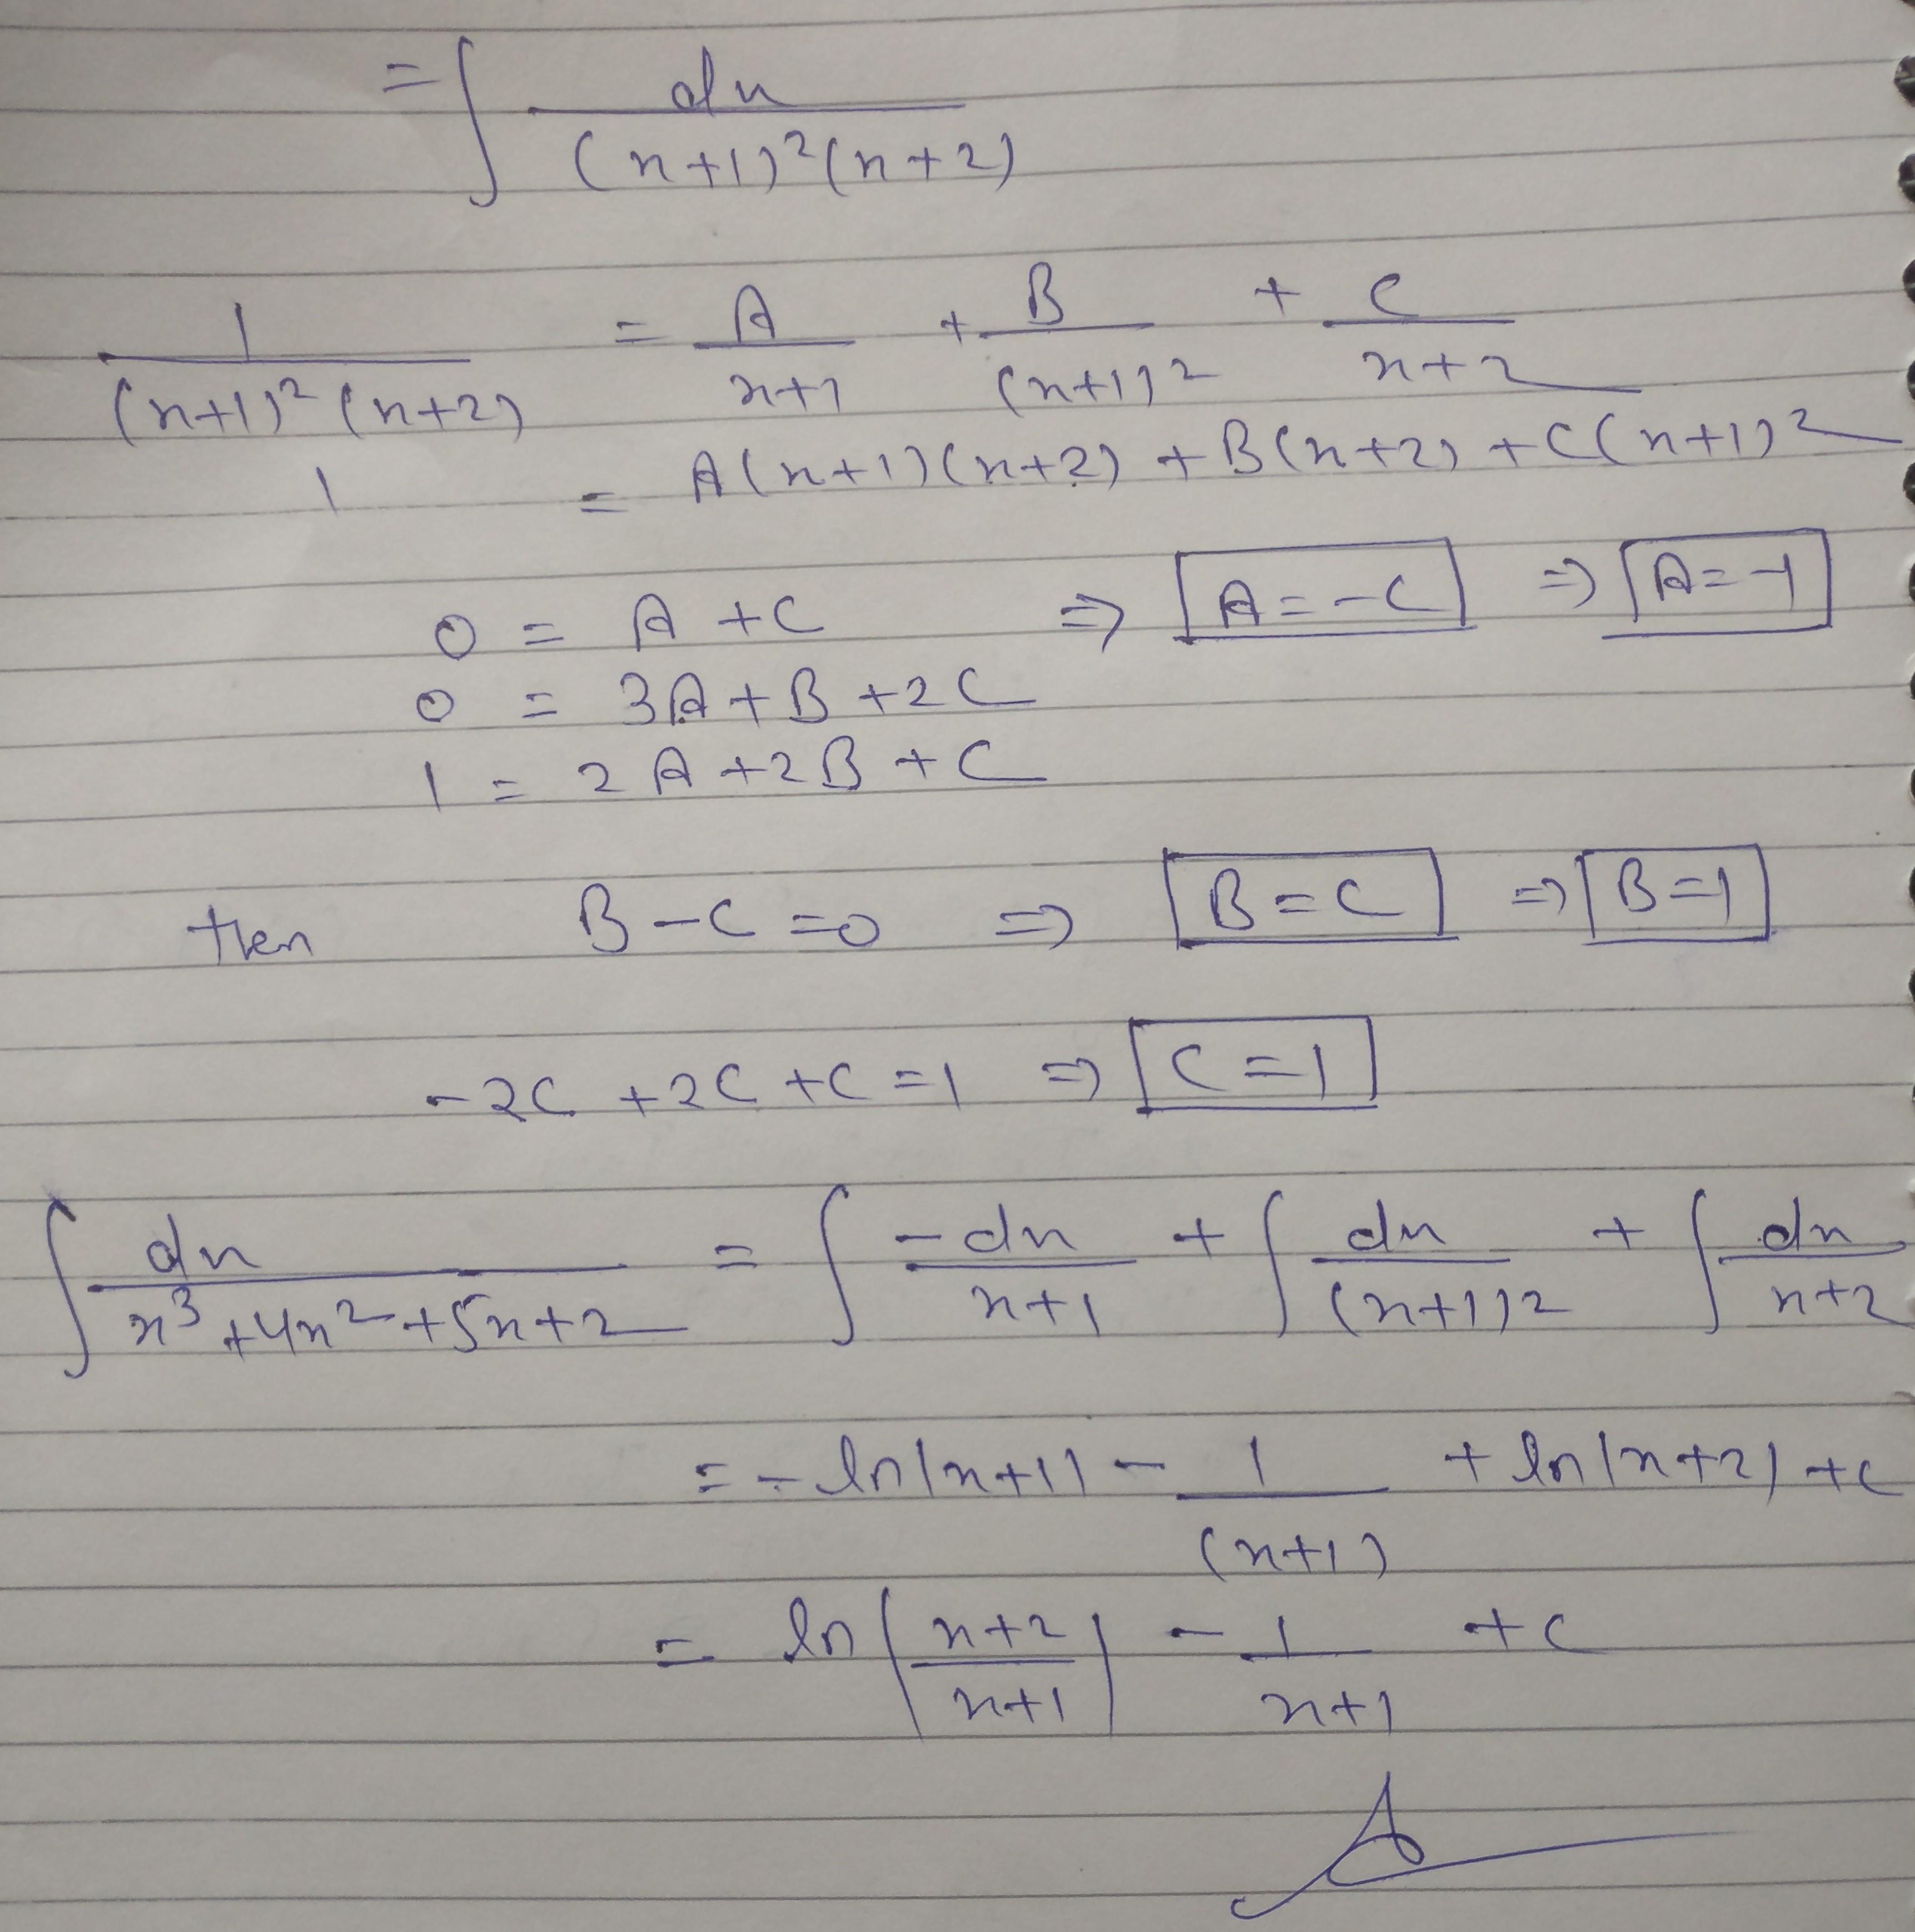 = ∫ dx / (x+1)²(x+2)
1 / (x+1)²(x+2) = A / x+1 + B / (x+1)² + C / x+2
1 = A(x+1)(x+2) + B(x+2) + C(x+1)²
0 = A + C ⇒ A = -C ⇒ A = -1
0 = 3A + B + 2C
1 = 2A + 2B + C
then B - C = 0 ⇒ B = C ⇒ B = 1
-2C + 2C + C = 1 ⇒ C = 1
∫ dx / x³+4x²+5x+2 = ∫ -dx / x+1 + ∫ dx / (x+1)² + ∫ dx / x+2
= - ln|x+1| - 1 / (x+1) + ln|x+2| + c
= ln | x+2 / x+1 | - 1 / x+1 + c